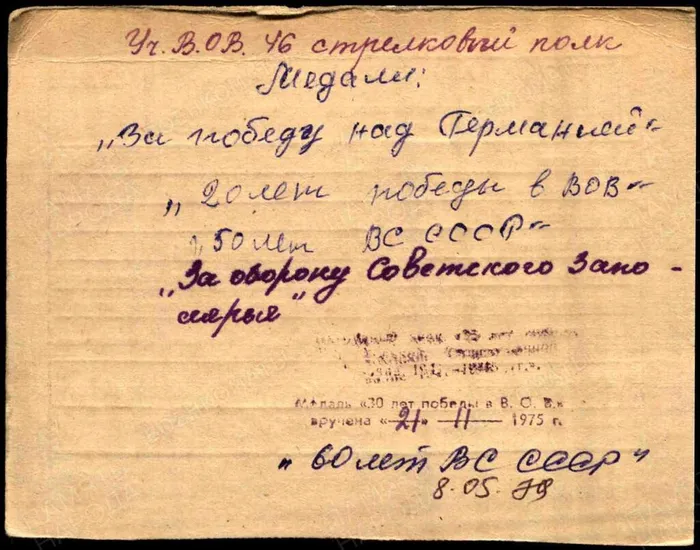 Уч. В.ОВ. 46 стрелковый полк
Медали:
„За победу над Германией"
„20 лет победы в ВОВ"
„50 лет ВС СССР"
„За оборону Советского Запо-
лярья"
знак «25 лет победы
Отечественной
войне 1941-1945 г.г.»
Медаль «30 лет победы в В. О. В.»
вручена «21» 11 1975 г.
„60 лет ВС СССР"
8.05.79